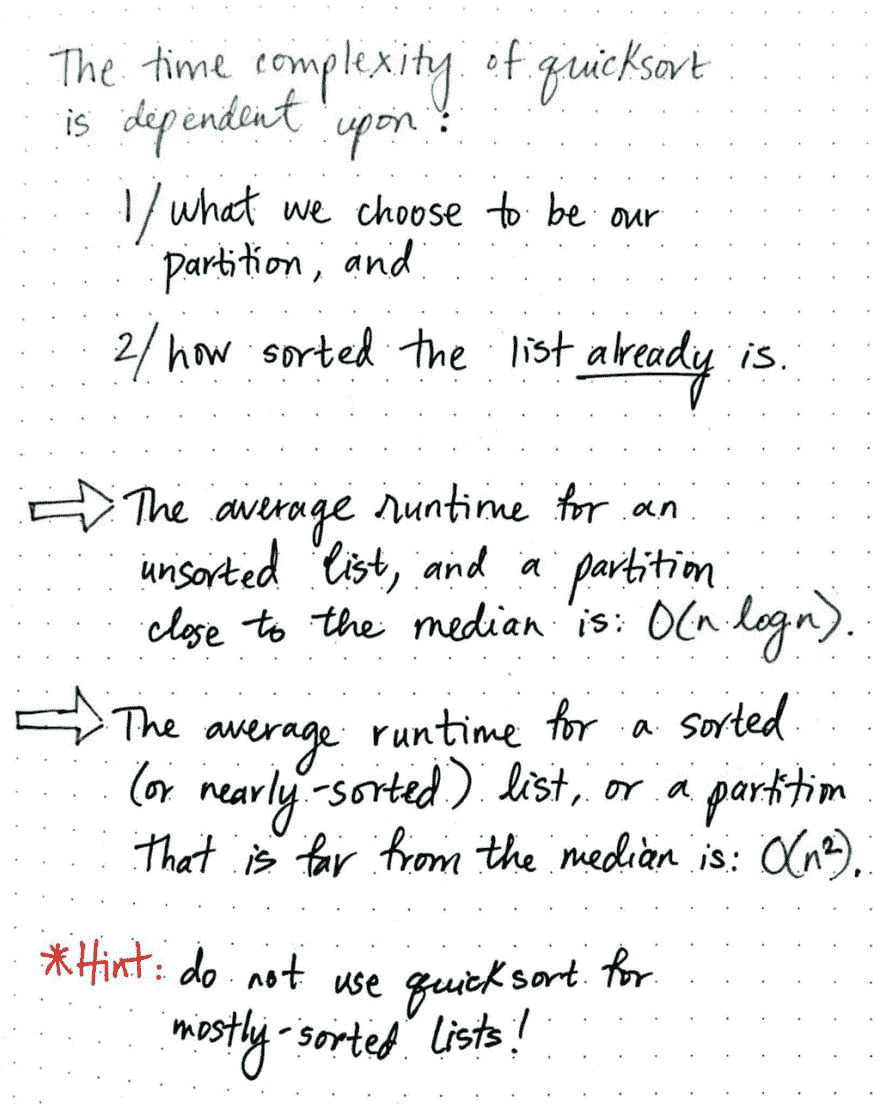 The time complexity of quicksort
is dependent upon:
1/ what we choose to be our
partition, and
2/ how sorted the list already is.
The average runtime for an
unsorted list, and a partition
close to the median is: O(n log n).
The average runtime for a sorted
(or nearly-sorted) list, or a partition
that is far from the median is: O(n²).
*Hint: do not use quicksort for
mostly-sorted lists!